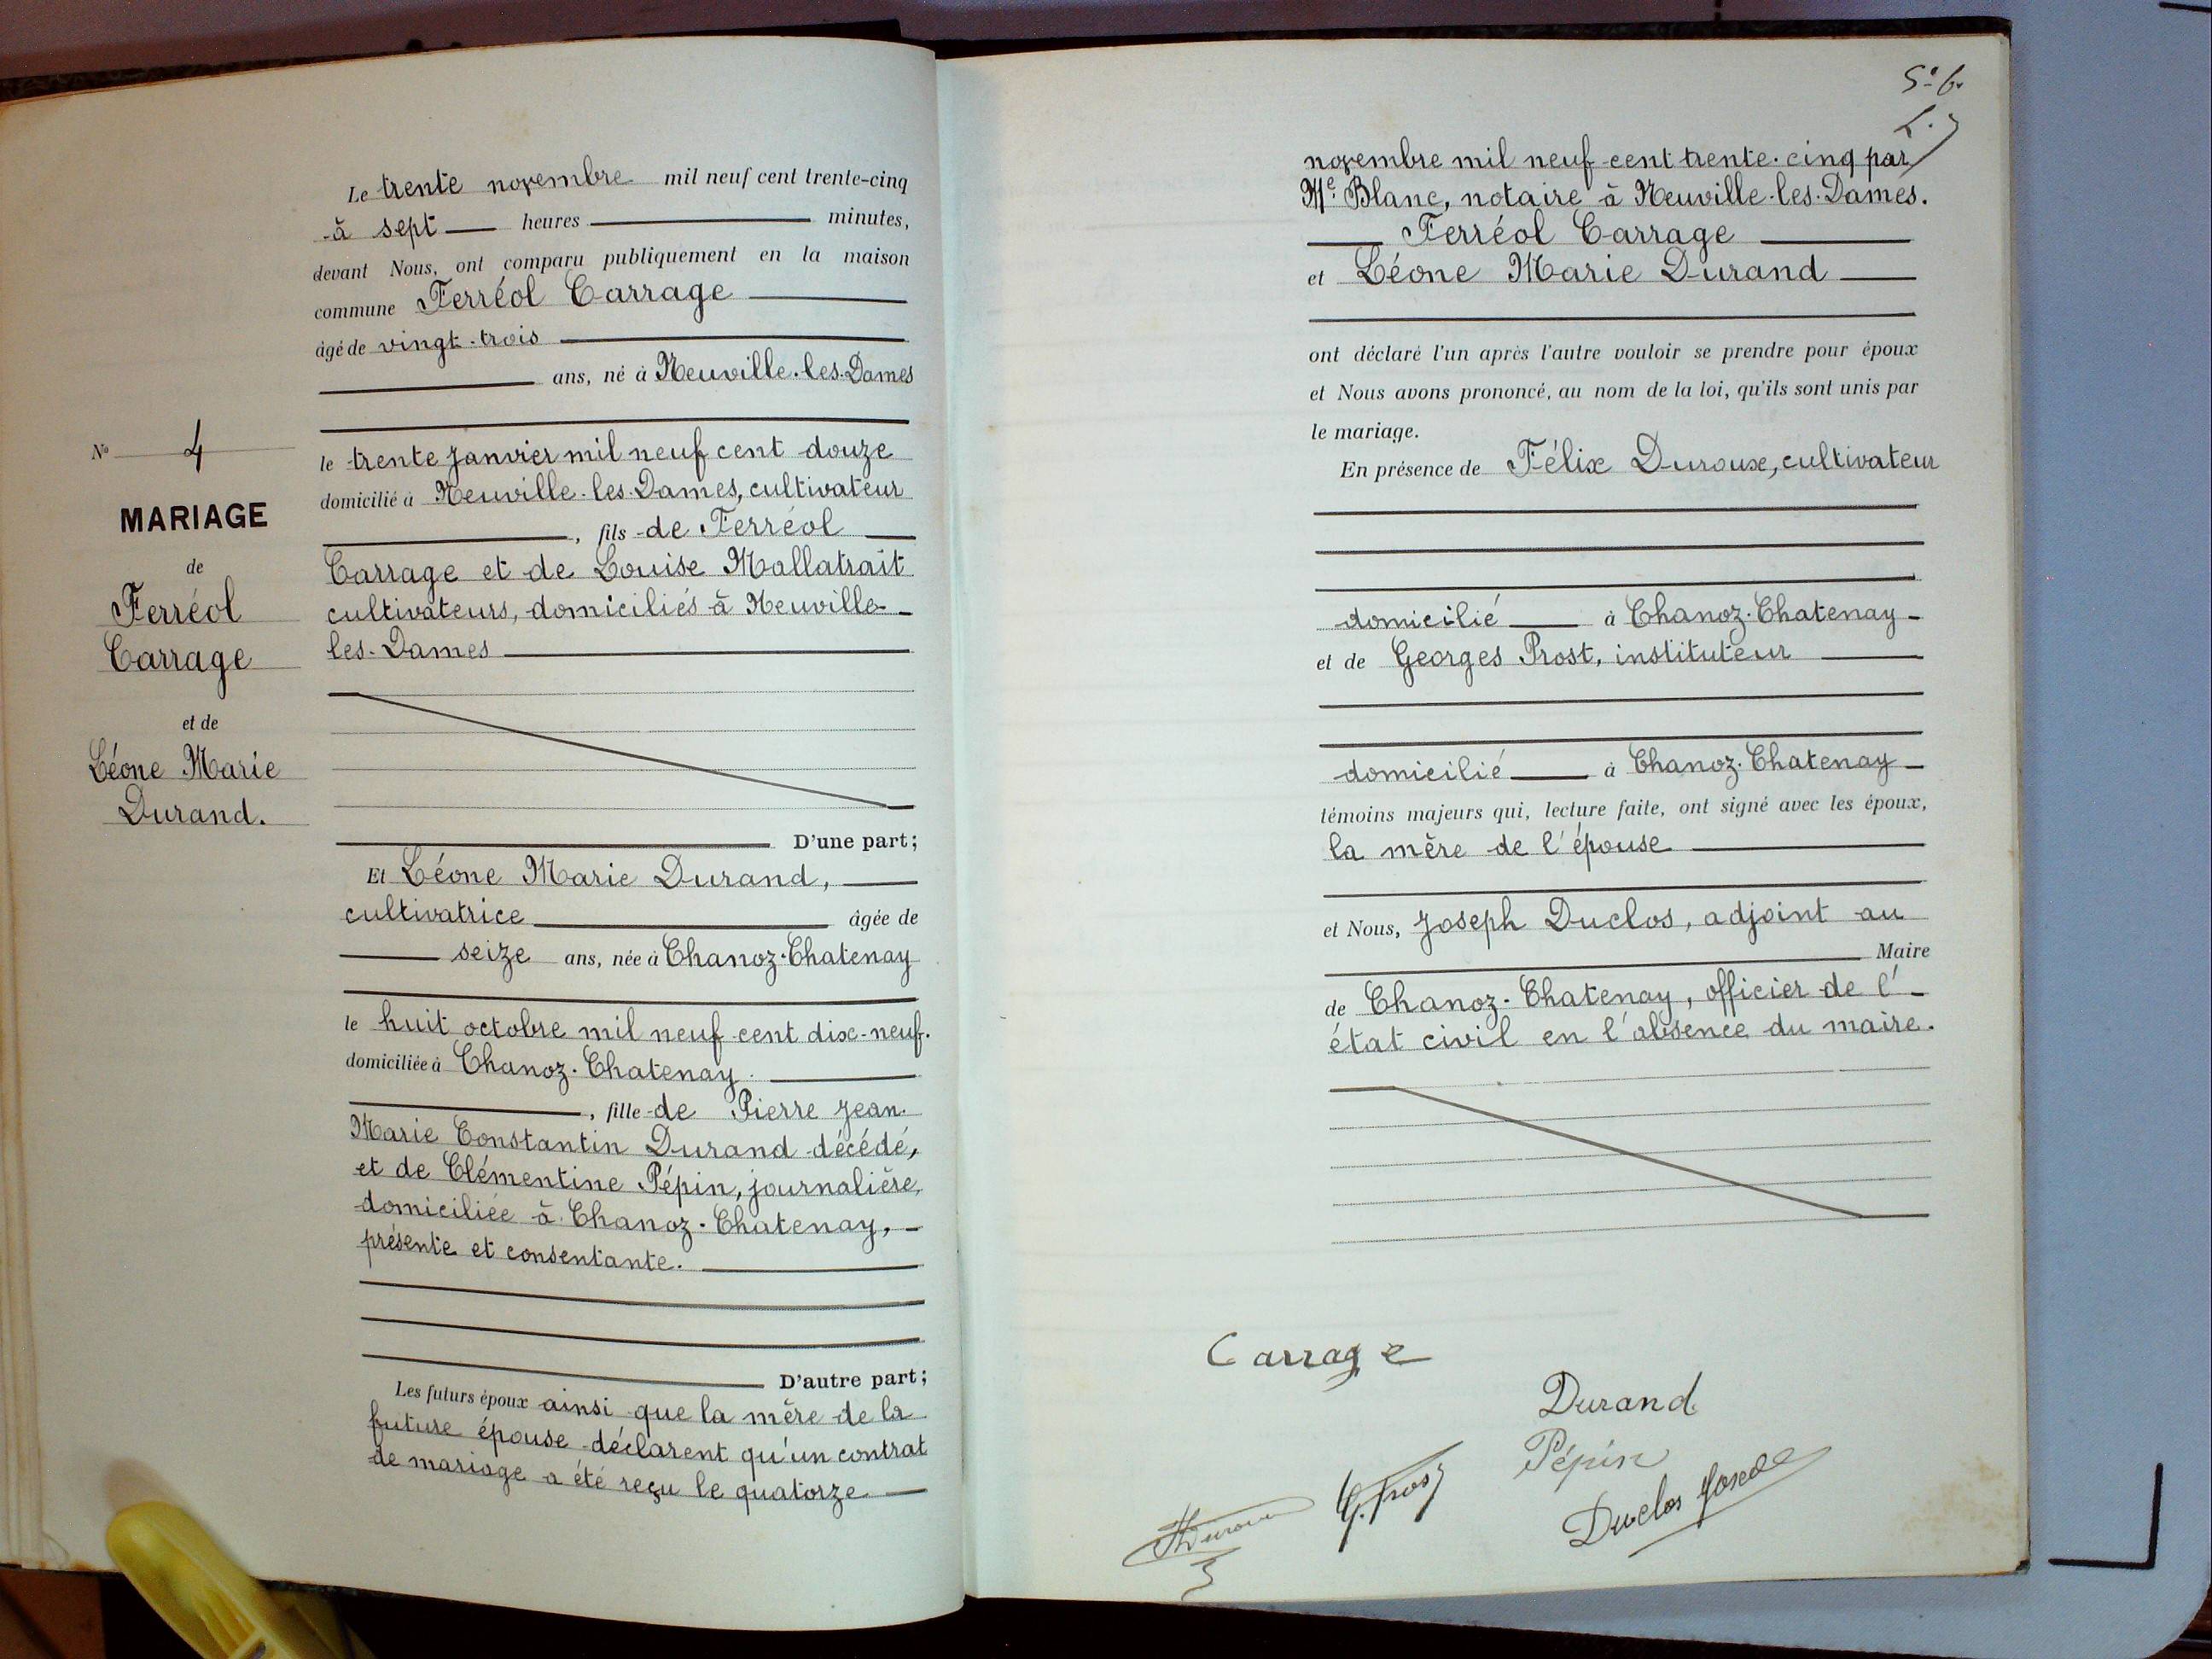 Le trente novembre mil neuf cent trente-cinq
à sept heures minutes,
devant Nous, ont comparu publiquement en la maison
commune Ferréol Carrage
âgé de vingt-trois
ans, né à Neuville-les-Dames
le trente janvier mil neuf cent douze
domicilié à Neuville-les-Dames, cultivateur
, fils de Ferréol
Carrage et de Louise Mallatrait
cultivateurs, domiciliés à Neuville-
les-Dames
D'une part;
Et Léone Marie Durand,
cultivatrice âgée de
seize ans, née à Chanoz-Chatenay
le huit octobre mil neuf cent dix-neuf.
domiciliée à Chanoz-Chatenay
, fille de Pierre Jean-
Marie Constantin Durand décédé,
et de Clémentine Pépin, journalière,
domiciliée à Chanoz-Chatenay,
présente et consentante.
D'autre part;
Les futurs époux ainsi que la mère de la
future épouse déclarent qu'un contrat
de mariage a été reçu le quatorze
Nº 4
MARIAGE
de
Ferréol
Carrage
et de
Léone Marie
Durand.
novembre mil neuf cent trente-cinq par
Me. Blanc, notaire à Neuville-les-Dames.
Ferréol Carrage
et Léone Marie Durand
ont déclaré l'un après l'autre vouloir se prendre pour époux
et Nous avons prononcé, au nom de la loi, qu'ils sont unis par
le mariage.
En présence de Félix Duroux, cultivateur
domicilié à Chanoz-Chatenay
et de Georges Prost, instituteur
domicilié à Chanoz-Chatenay
témoins majeurs qui, lecture faite, ont signé avec les époux,
la mère de l'épouse
et Nous, Joseph Duclos, adjoint au
Maire
de Chanoz-Chatenay, officier de l'
état civil en l'absence du maire.
Carrage
Durand
Pépin
G. Prost
Duclos Joseph